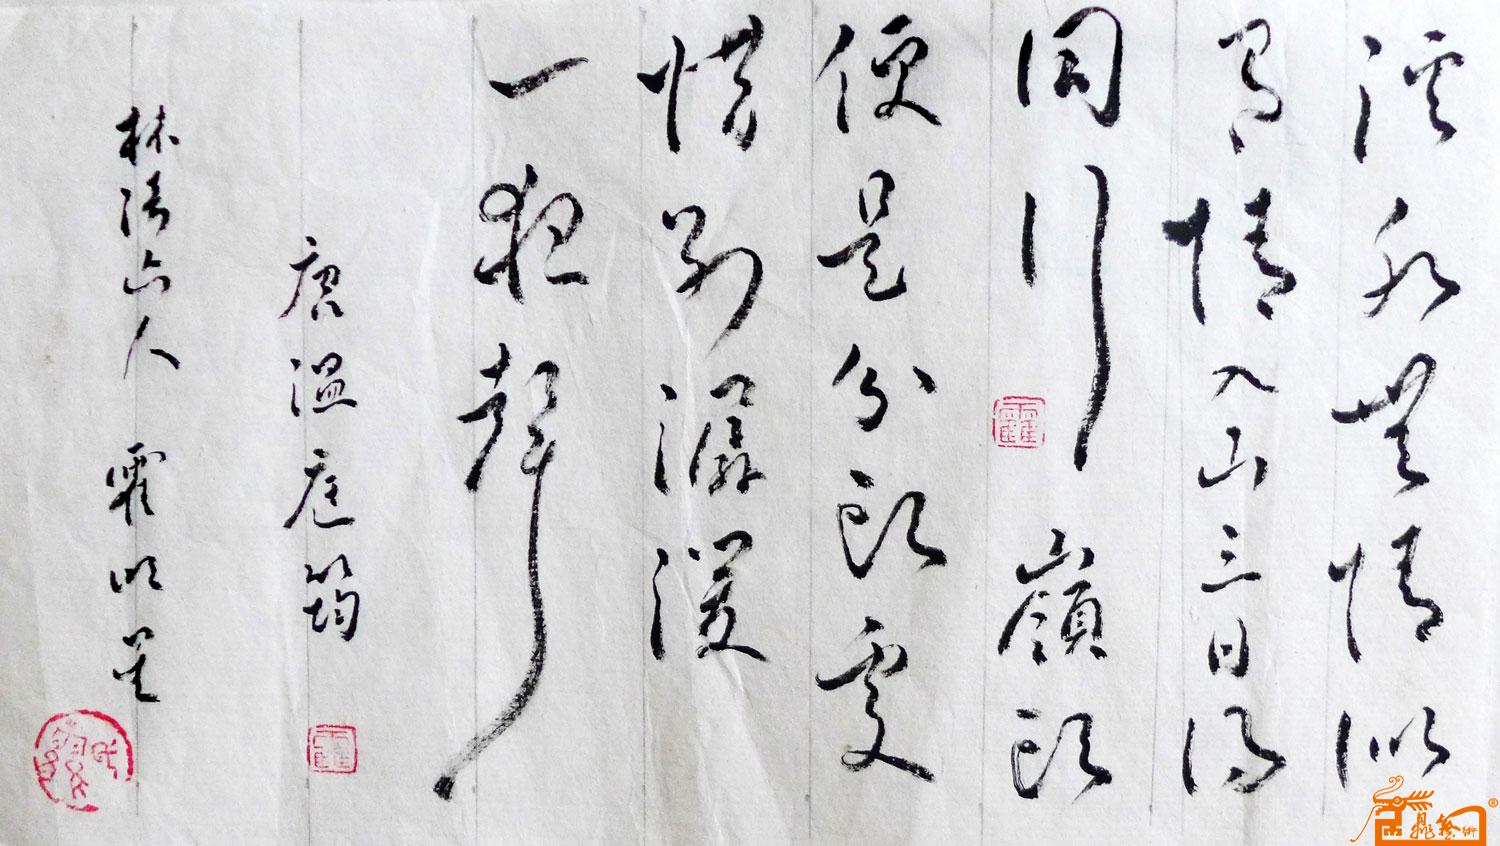 溪水無情似
有情入山三日得
同行嶺頭
便是分頭處
惜別潺湲
一夜聲
唐温庭筠
林山人 霍明星
霍
霍